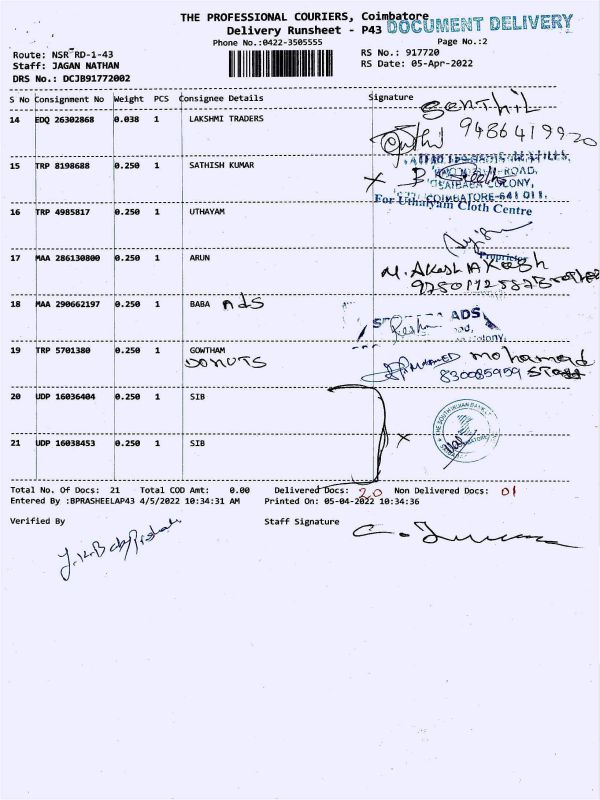 THE PROFESSIONAL COURIERS, Coimbatore
DOCUMENT DELIVERY
Delivery Runsheet - P43
Phone No.:0422-3505555
Page No.:2
Route: NSR RD-1-43
RS No.: 917720
Staff: JAGAN NATHAN
RS Date: 05-Apr-2022
DRS No.: DCJB91772002
S No Consignment No Weight PCS Consignee Details Signature
SENTHIL
14 EDQ 26302868 0.038 1 LAKSHMI TRADERS
9486419920
15 TRP 8198688 0.250 1 SATHISH KUMAR
ROAD,
SAIBABA COLONY,
COIMBATORE-641 011.
16 TRP 4985817 0.250 1 UTHAYAM
For Uthayam Cloth Centre
Proprietor
17 MAA 286130800 0.250 1 ARUN
M. Akash
18 MAA 290662197 0.250 1 BABA Ads
ADS
19 TRP 5701380 0.250 1 GOWTHAM
DONUTS
Mohamed
830085959 Staff
20 UDP 16036404 0.250 1 SIB
21 UDP 16038453 0.250 1 SIB
Total No. Of Docs: 21 Total COD Amt: 0.00 Delivered Docs: 20 Non Delivered Docs: 01
Entered By :BPRASHEELAP43 4/5/2022 10:34:31 AM Printed On: 05-04-2022 10:34:36
Verified By Staff Signature